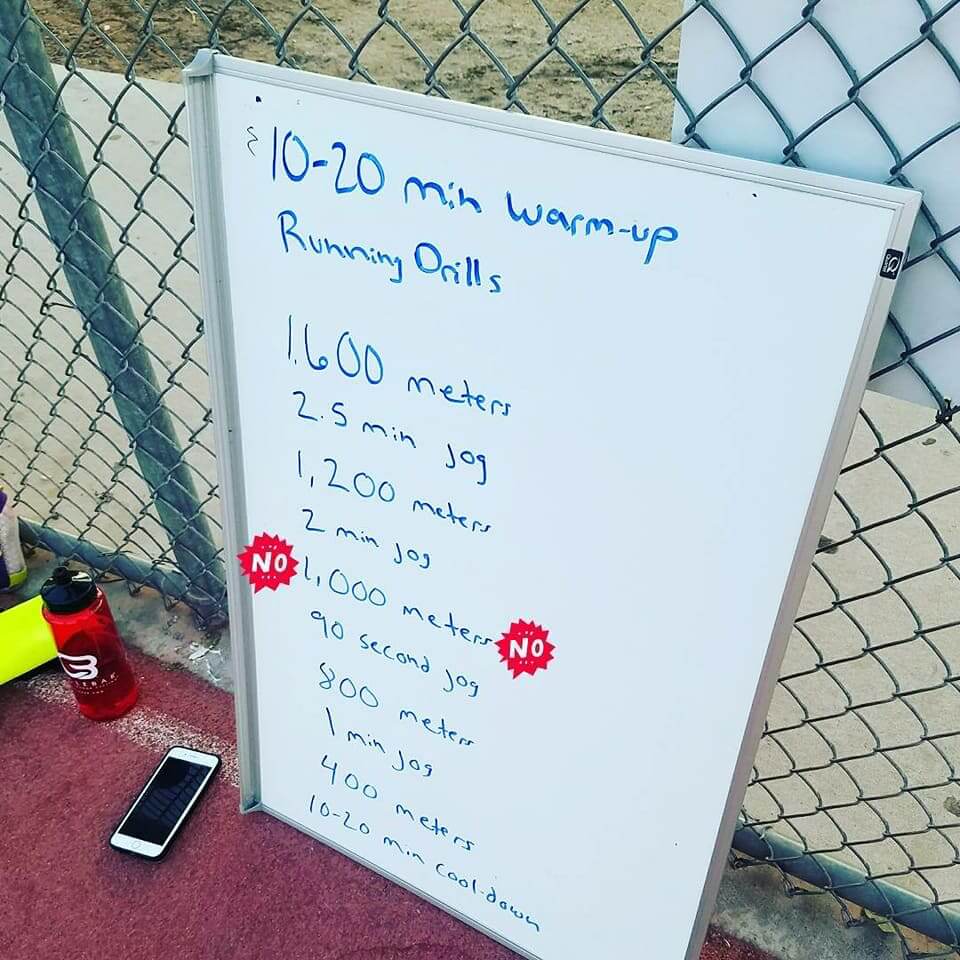 10-20 min warm-up
Running Drills
1,600 meters
2.5 min jog
1,200 meters
2 min jog
NO 1,000 meters NO
90 second jog
800 meters
1 min jog
400 meters
10-20 min cool-down